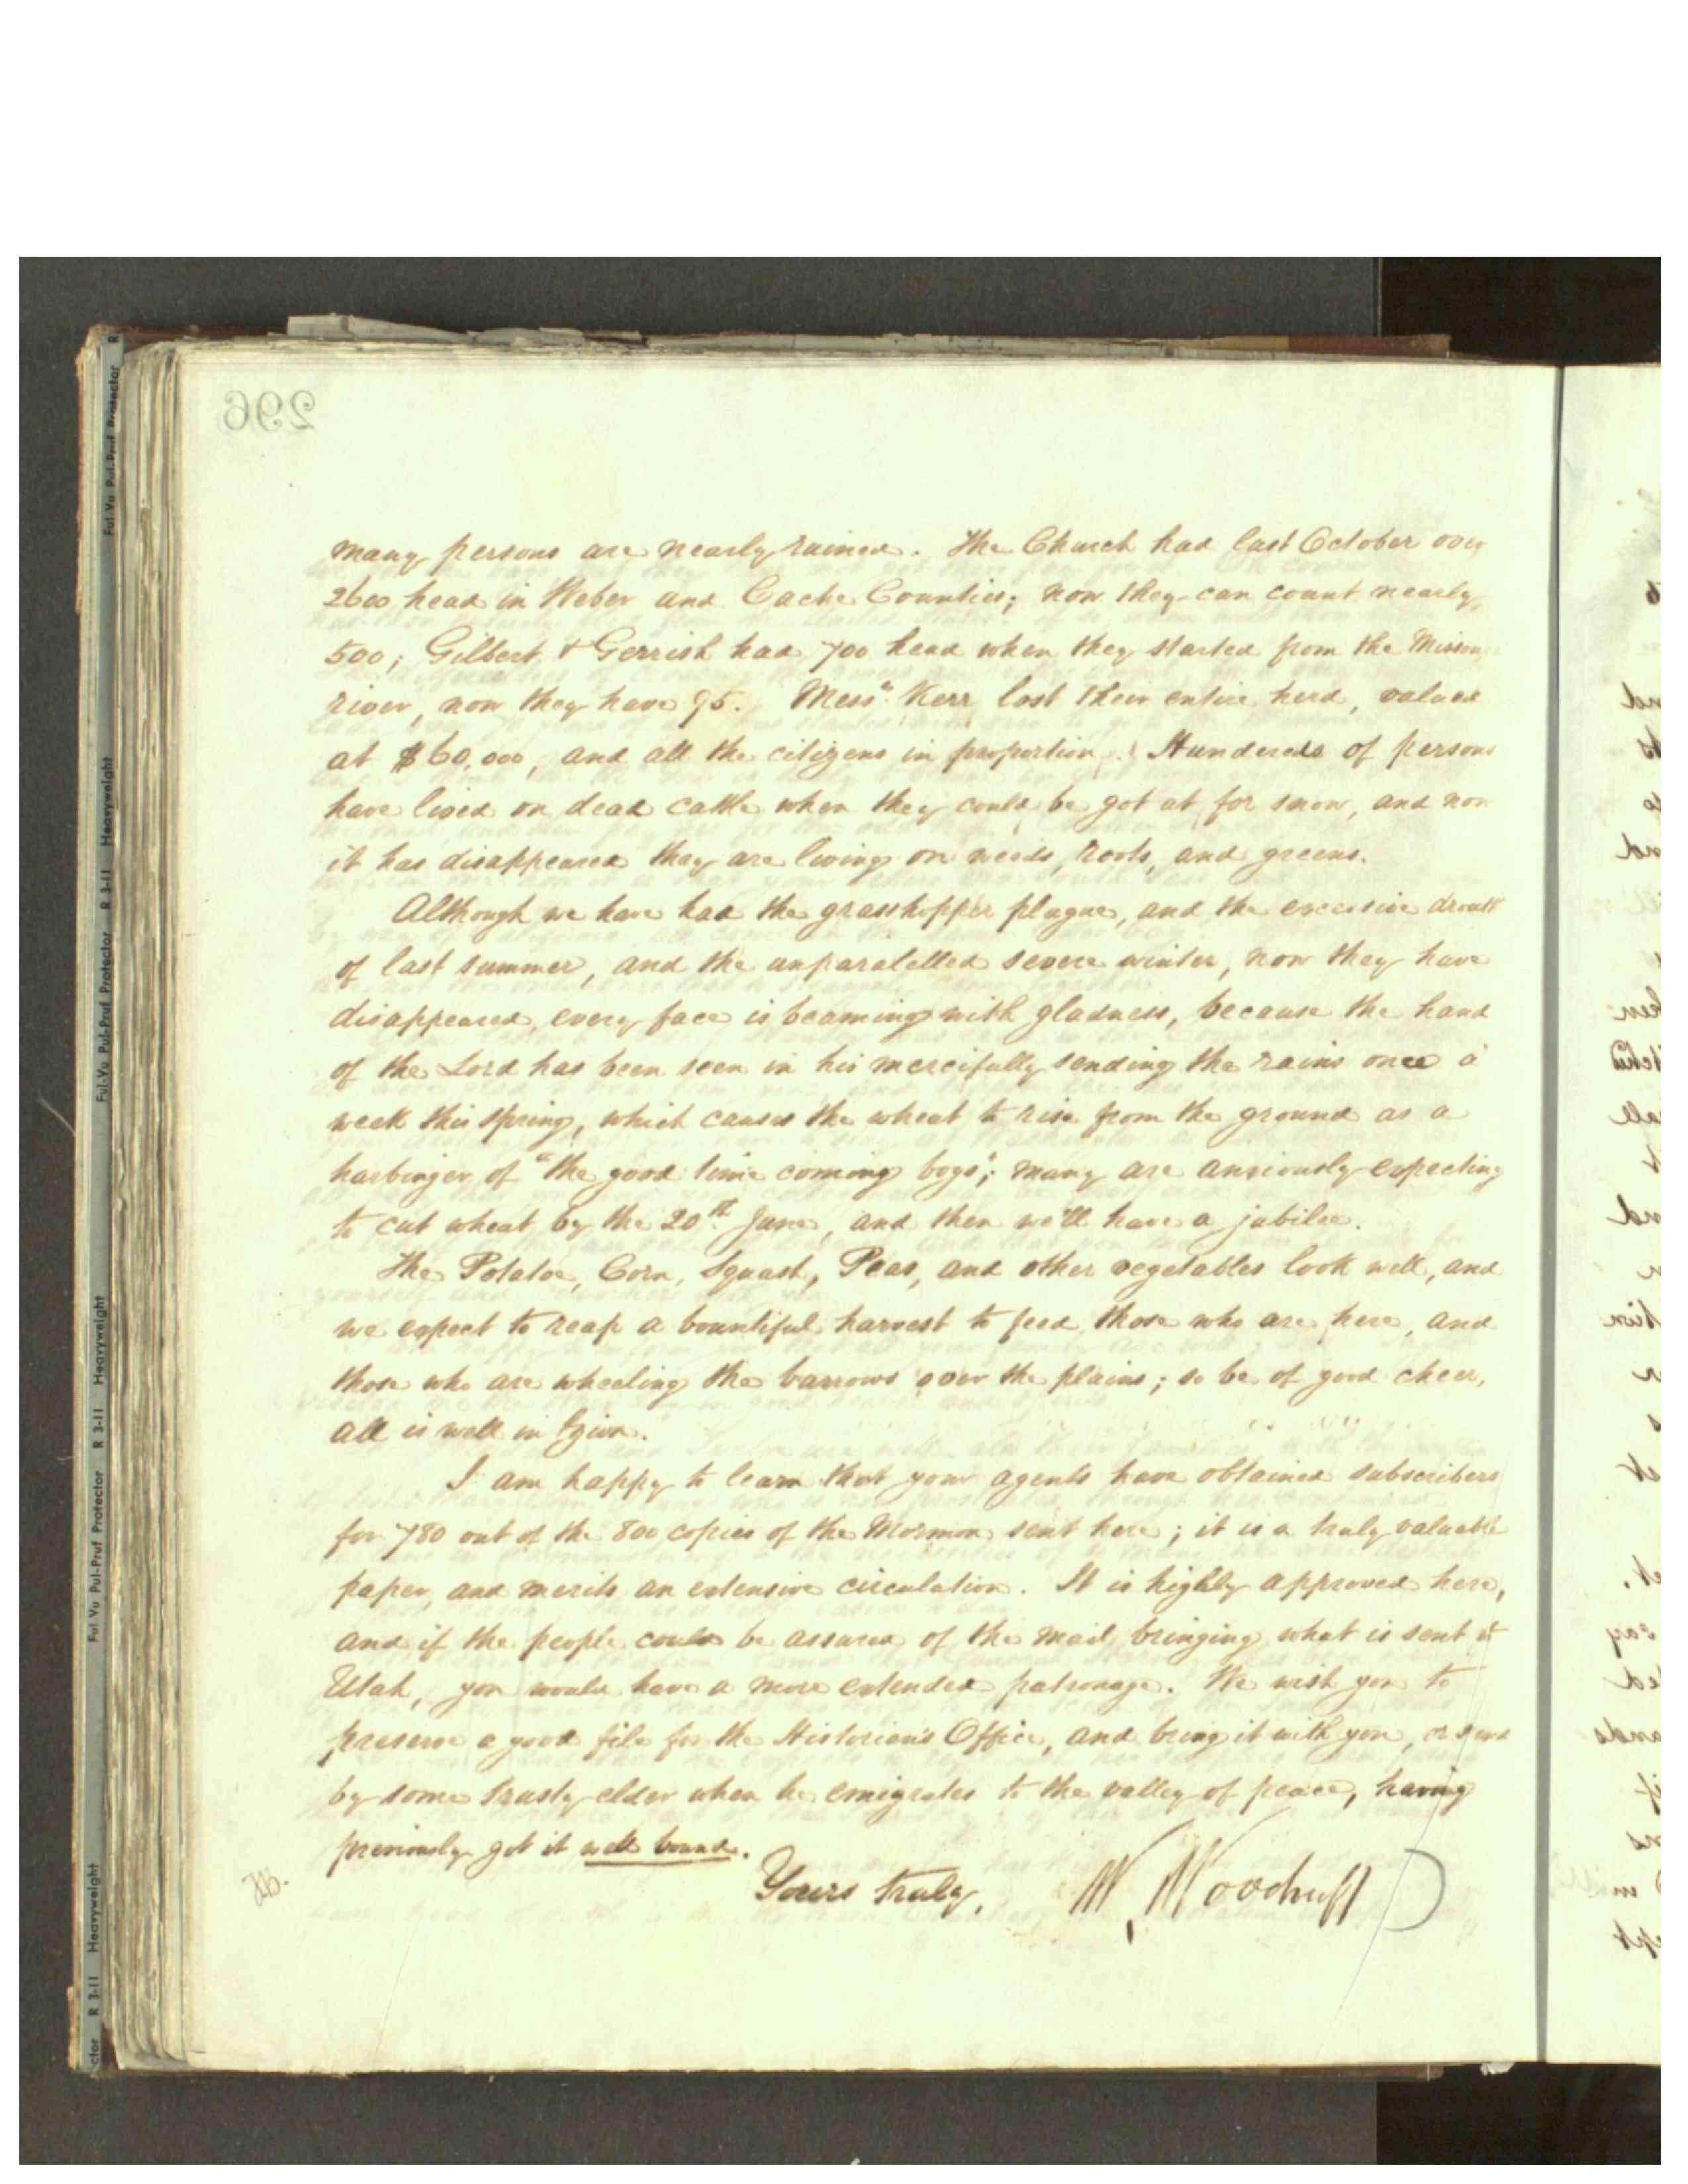 296
many persons are nearly ruined. The Church had last October over
2600 head in Weber and Cache Counties; now they can count nearly
500; Gilbert & Gerrish had 700 head when they started from the Missou
river, now they have 95. Messrs Kerr lost their entire herd, valued
at $60,000, and all the citizens in proportion. Hundereds of persons
have lived on dead cattle when they could be got at for snow, and now
it has disappeared they are living on weeds, roots, and greens.
Although we have had the grasshopper plague, and the excessive drouth
of last summer, and the unparalelled severe winter, now they have
disappeared, every face is beaming with gladness, because the hand
of the Lord has been seen in his mercifully sending the rains once a
week this spring, which causes the wheat to rise from the ground as a
harbinger of "the good time coming boys"; many are anxiously expecting
to cut wheat by the 20th June, and then we'll have a jubilee.
The Potatoe, Corn, Squash, Peas, and other vegetables look well, and
we expect to reap a bountiful harvest to feed those who are here, and
those who are wheeling the barrows over the plains; so be of good cheer,
all is well in Zion.
I am happy to learn that your agents have obtained subscribers
for 780 out of the 800 copies of the Mormon sent here; it is a truly valuable
paper, and merits an extensive circulation. It is highly approved here,
and if the people could be assured of the mail bringing what is sent to
Utah, you would have a more extended patronage. We wish you to
preserve a good file for the Historian's Office, and bring it with you, or send
by some trusty elder when he emigrates to the valley of peace, having
previously got it well bound.
Yours truly, W. Woodruff
Ful-Vu Pul-Pruf Protector R 3-11 Heavyweight